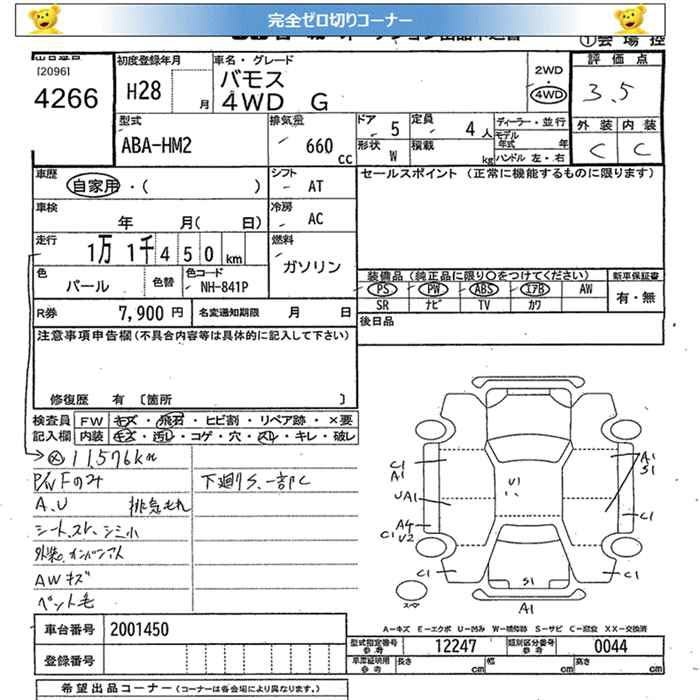 完全ゼロ切りコーナー
①会場控
[2096]
4266
初度登録年月
H28 月
車名・グレード
バモス
4WD G
2WD
・
4WD
評価点
3.5
外装 内装
C C
型式
ABA-HM2
排気量
660 cc
ドア 5
定員 4人
ディーラー・並行
モデル年式 年
形状 W
積載 kg
ハンドル 左・右
車歴
自家用・( )
シフト
AT
セールスポイント (正常に機能するものに限ります)
車検
年 月( 日)
冷房
AC
走行
1万1千450km
燃料
ガソリン
色
パール
色替
色コード
NH-841P
装備品 (純正品に限り○をつけてください)
新車保証書
PS PW ABS エアB AW
SR ナビ TV カワ
有・無
R券 7,900円
名変通知期限 月 日
後日品
注意事項申告欄(不具合内容等は具体的に記入して下さい)
修復歴 有 [箇所 ]
検査員 FW キズ・飛石・ヒビ割・リペア跡・×要
記入欄 内装 キズ・汚レ・コゲ・穴・スレ・キレ・破レ
11,576km
P/W Fのみ
下廻りS、一部C
A.U 排気もれ
シートスレ、シミ小
AWキズ
ペント毛
C1
A1
UA1
A4
C1 U2
C1
U1
S1
A1
A1
S1
C1
C1
A-キズ E-エクボ U-凹み W-補修跡 S-サビ C-腐食 XX-交換済
車台番号 2001450
型式指定番号 参考 12247
類別区分番号 参考 0044
登録番号
車庫証明用 参考 長さ cm 幅 cm 高さ cm
希望出品コーナー (コーナーは各会場により異なります。)